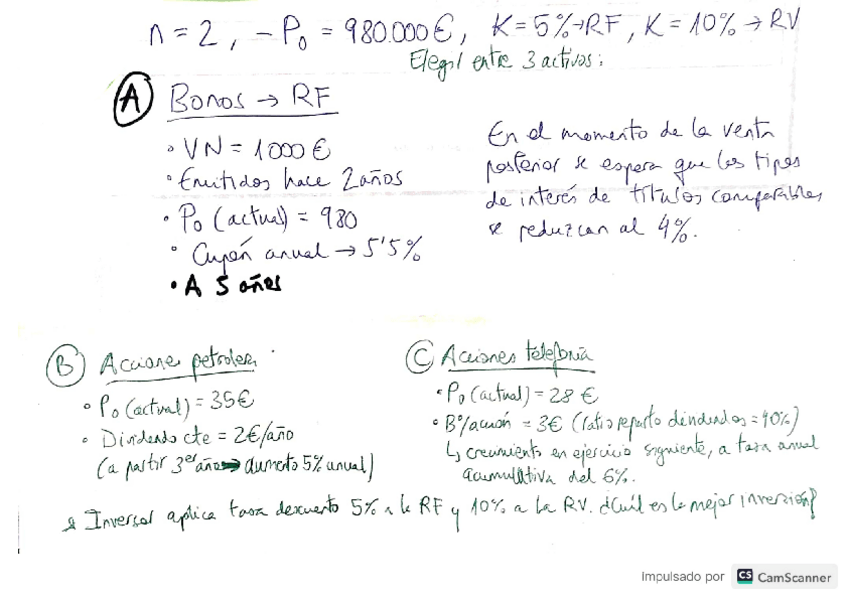 n = 2, -P₀ = 980.000€, K = 5%→RF, K = 10% → RV
Elegir entre 3 activos:
A Bonos → RF
• VN = 1000 €
• Emitidos hace 2 años
• P₀ (actual) = 980
• Cupón anual → 5'5%
• A 5 años
En el momento de la venta
posterior se espera que los tipos
de interés de títulos comparables
se reduzcan al 4%.
B Acciones petrolera
• P₀ (actual) = 35€
• Dividendo cte = 2€/año
(a partir 3er año → aumento 5% anual)
C Acciones telefonía
• P₀ (actual) = 28 €
• Bº/acción = 3€ (ratio reparto dividendos = 40%)
↳ crecimiento en ejercicio siguiente, a tasa anual
acumulativa del 6%.
Inversor aplica tasa descuento 5% a la RF y 10% a la RV. ¿Cuál es la mejor inversión?
Impulsado por CS CamScanner